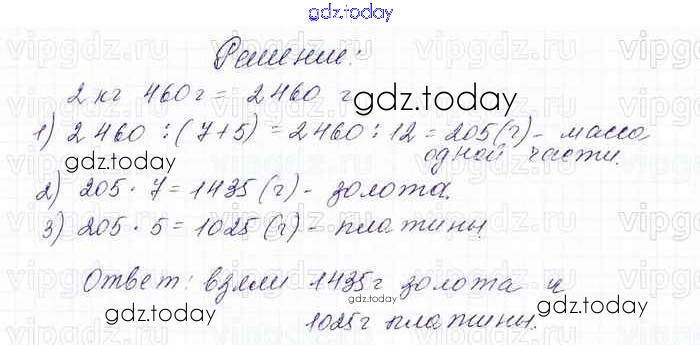 gdz.today
Решение:
2 кг 460 г = 2 460 г
gdz.today
1) 2 460 : (7+5) = 2460 : 12 = 205(г) - масса
одной части.
gdz.today
2) 205 · 7 = 1435 (г) - золота.
3) 205 · 5 = 1025 (г) - платины
gdz.today
Ответ: взяли 1435г золота и
gdz.today
gdz.today
1025г платины.
vipgdz.ru